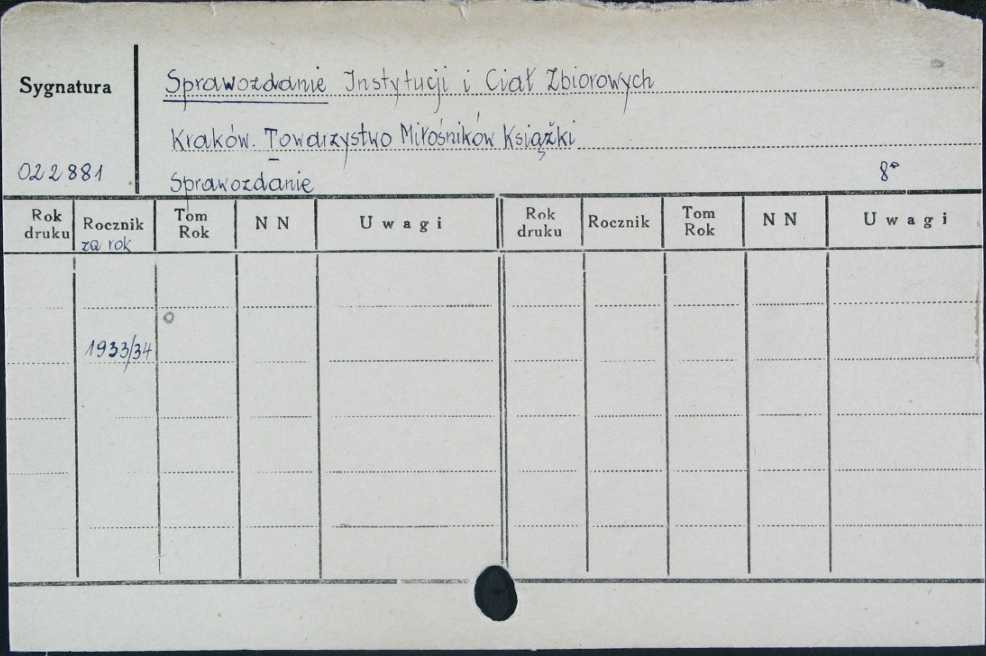 Sygnatura
Sprawozdanie Instytucji i Ciał Zbiorowych
Kraków. Towarzystwo Miłośników Książki
022881
8°
Sprawozdanie
Rok druku Rocznik za rok Tom Rok NN Uwagi Rok druku Rocznik Tom Rok NN Uwagi
1933/34